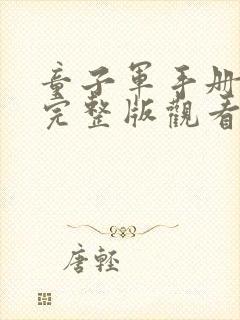 童子軍手册
完整版觀看
唐輕